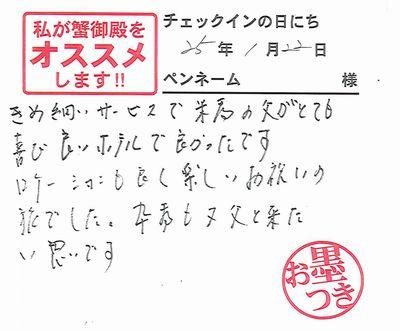 私が蟹御殿を
オススメ
します!!
チェックインの日にち
25年1月22日
ペンネーム 様
きめ細いサービスで米寿の父がとても
喜び良いホテルで良かったです
ロケーションも良く楽しいお祝いの
旅でした。卒寿も又父と来た
い思いです
お墨
つき